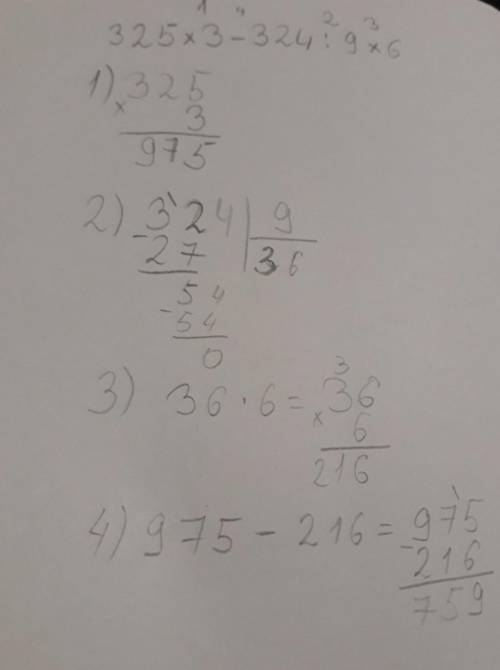 1 4 2 3
325 × 3 - 324 : 9 × 6
1) 325
× 3
975
2) 324 | 9
- 27 | 36
54
- 54
0
3) 36 · 6 = × 36
3
6
216
4) 975 - 216 = 975
- 216
759